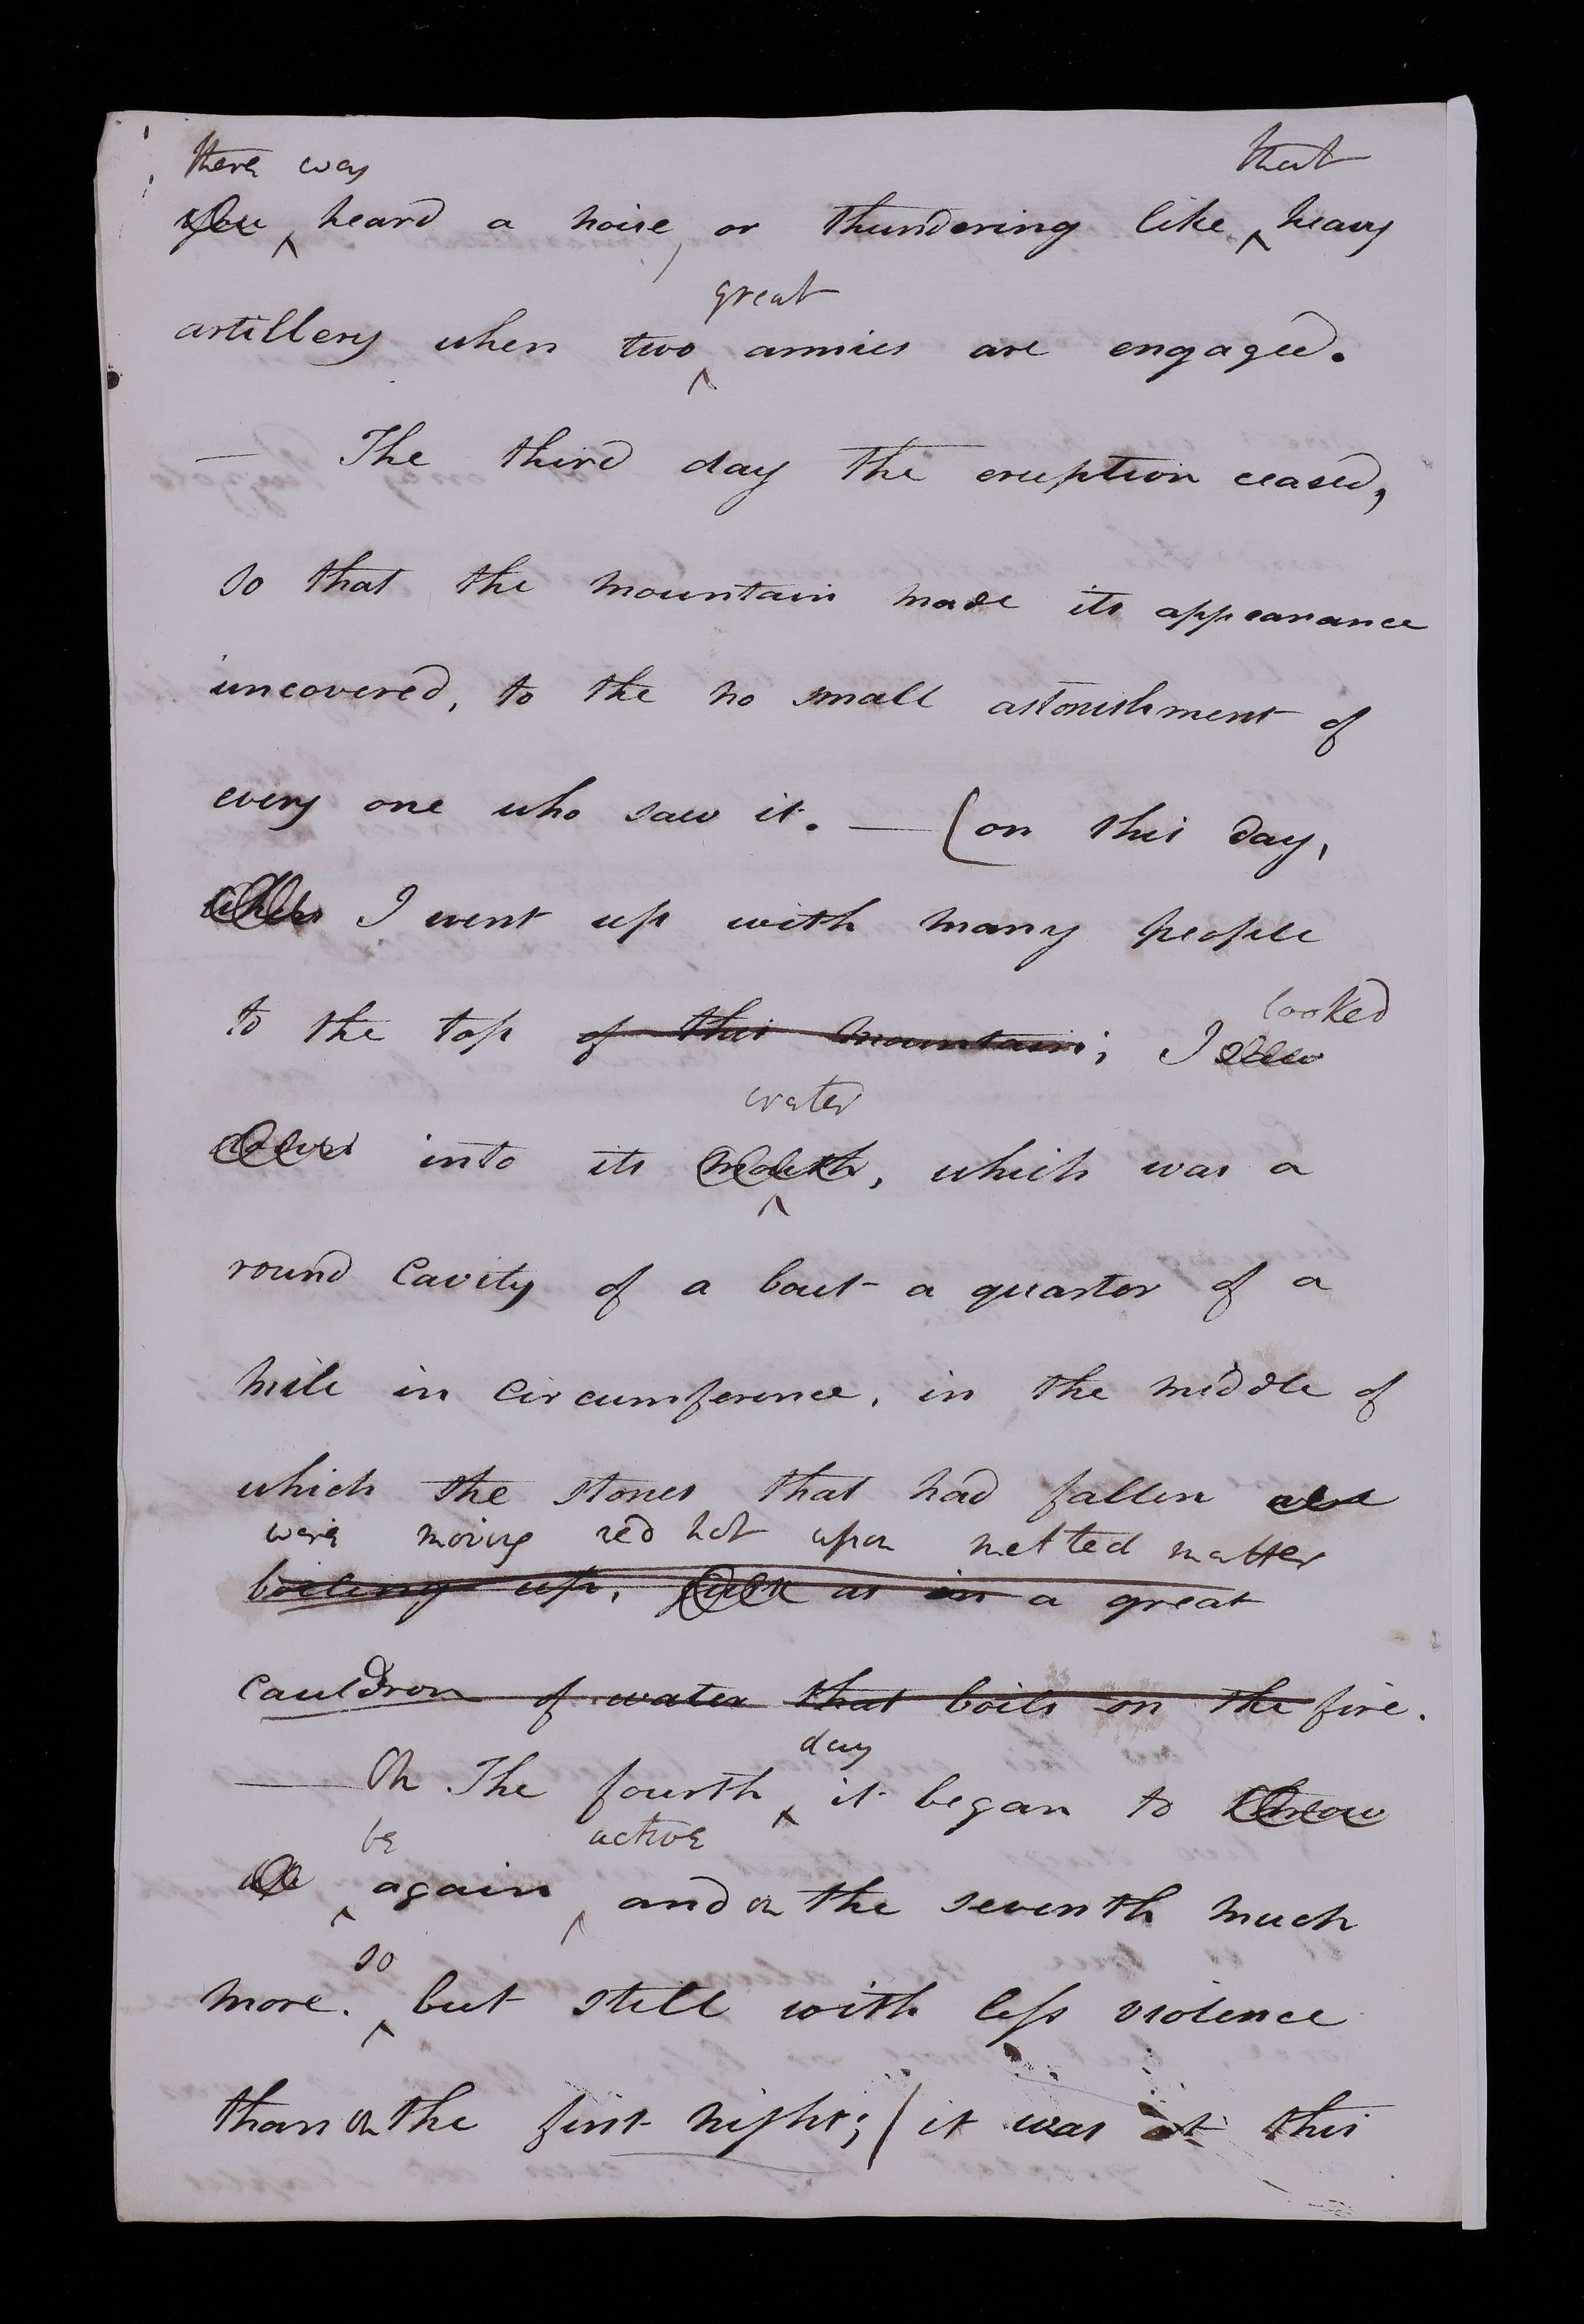 there was that
you heard a noise, or thundering like heavy
great
artillery when two armies are engaged.
— The third day the eruption ceased,
so that the mountain made its appearance
uncovered, to the no small astonishment of
every one who saw it. — (on this day,
when I went up with many people
looked
to the top of this mountain; I saw
crater
down into its mouth, which was a
round Cavity of a bout a quarter of a
mile in Circumference, in the middle of
which the stones that had fallen are
were moving red hot upon melted matter
boiling up, such as in a great
Cauldron of water that boils on the fire.
day
— On The fourth it began to throw
be active
again and on the seventh much
so
more. but still with less violence
than on the first night; (it was at this